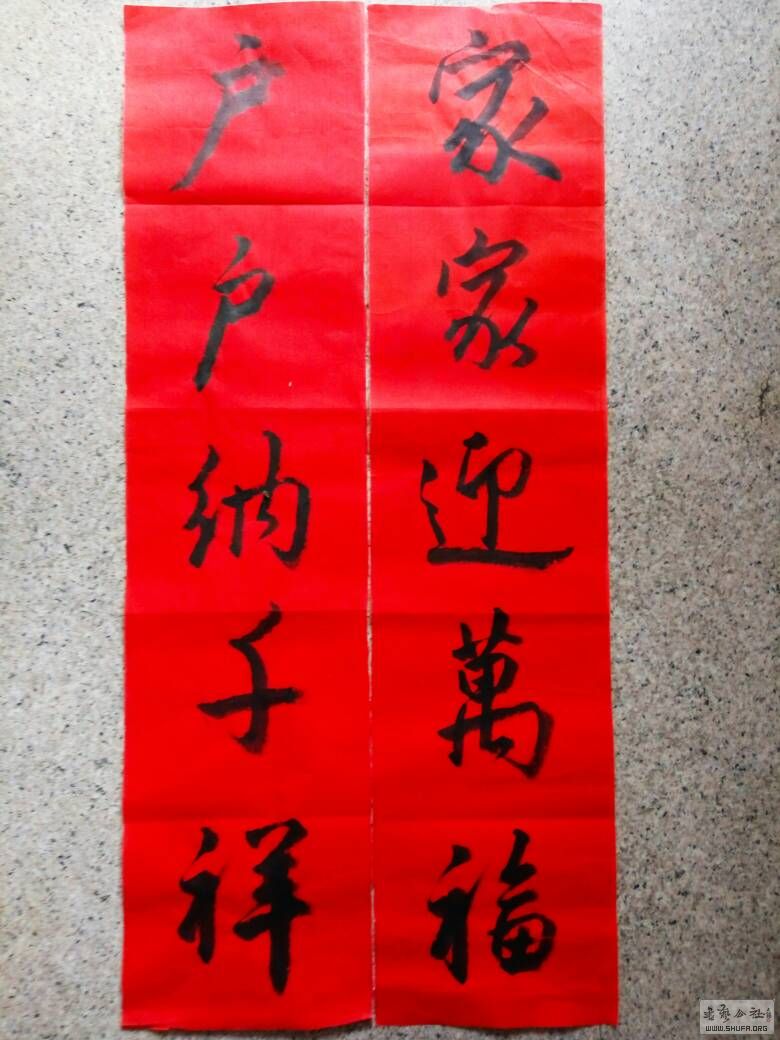 家家迎萬福
户户纳千祥
WWW.SHUFA.ORG